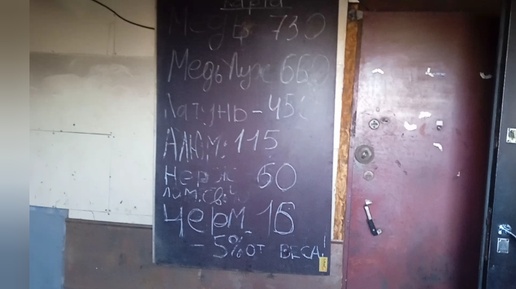 Медь 730
Медь Луж 660
Латунь - 45
Алюм: 115
Нерж - 60
Черм. 16
- 5% от веса!